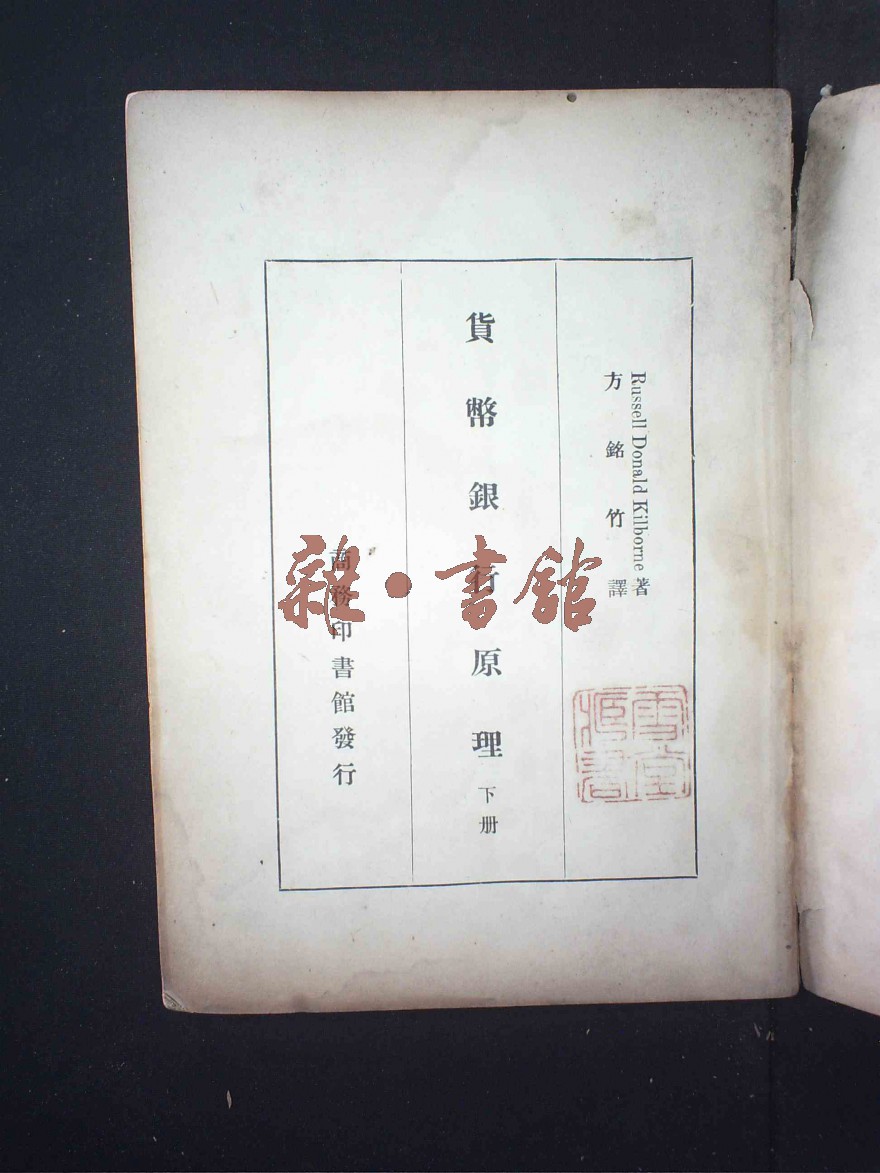 Russell Donald Kilborne 著
方銘竹譯
貨幣銀行原理 下册
商務印書館發行
雜·書館
雪堂
藏書